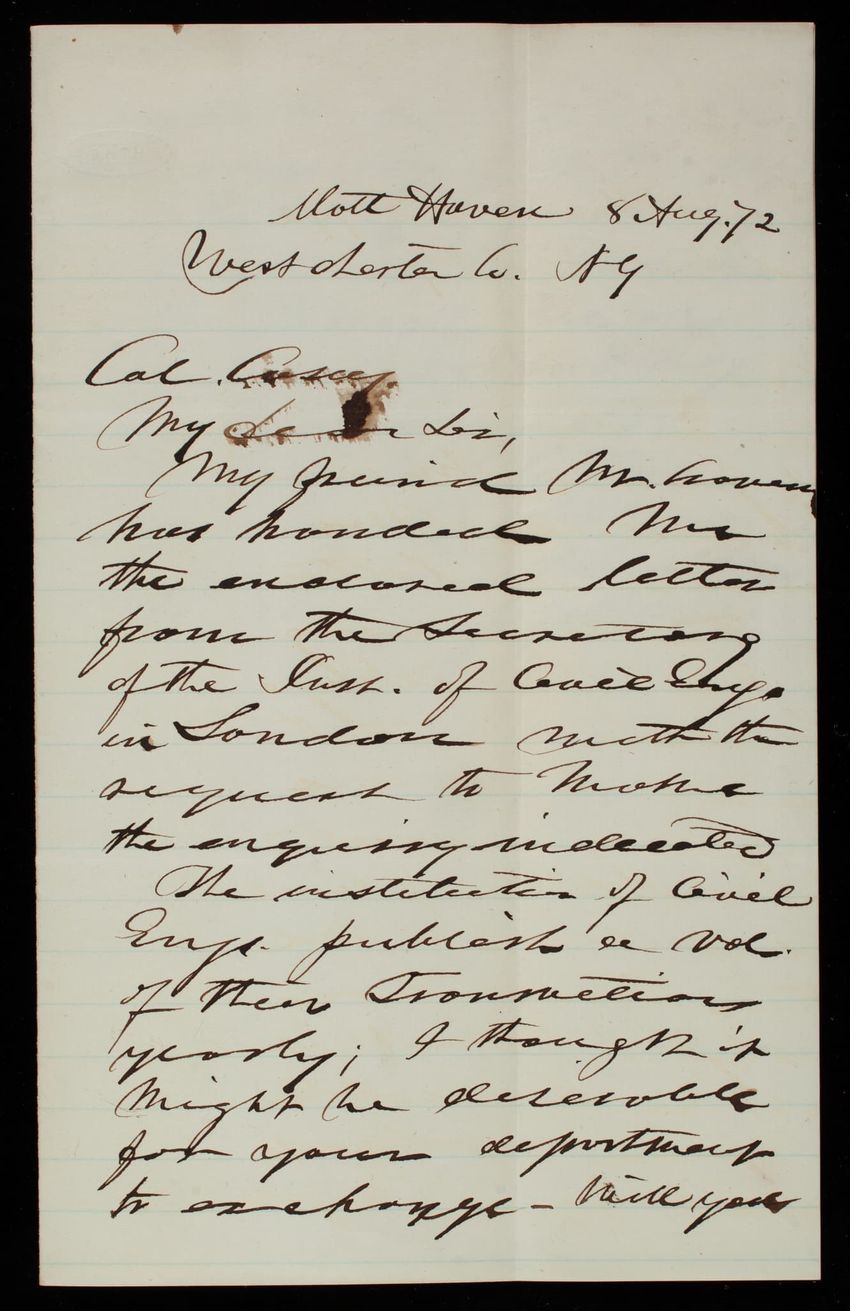 Mott Haven 8 Aug. 72
Westchester Co. NY
Col. Casey
My dear Sir,
My friend Mr. Craven
has handed me
the enclosed letter
from the Secretary
of the Inst. of Civil Engs
in London with the
request to make
the enquiry indicated
The institution of Civil
Engs. publish a vol.
of their Transactions
yearly; I thought it
might be desirable
for your department
to exchange - Will you